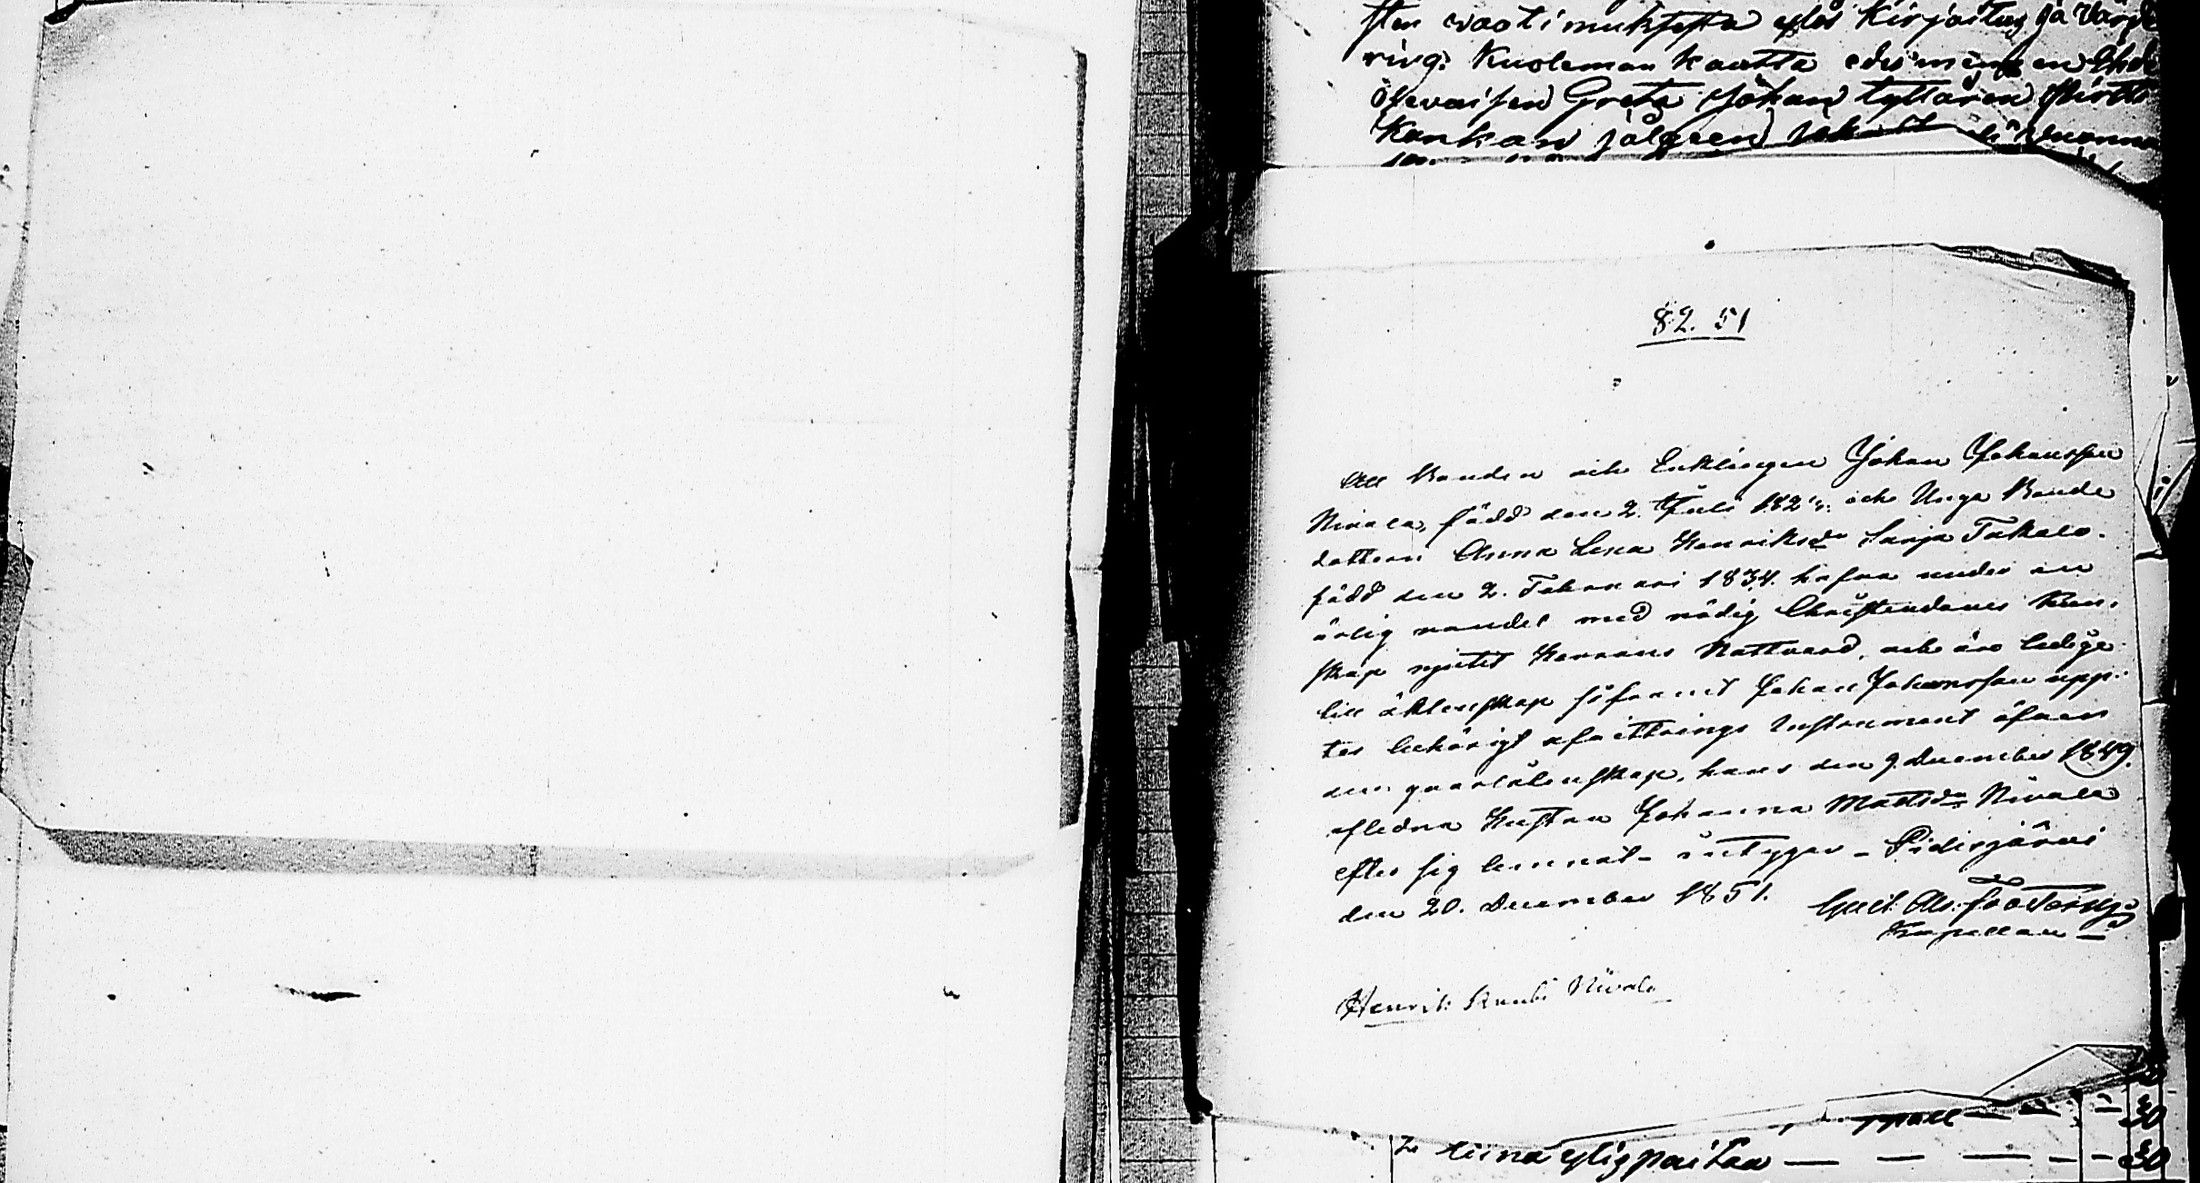 sten waatimuksesta ylös Kirjoitus ja Värde
ring: Kuoleman kautta edesmennen Ehdo
Greta Johan tyttären
Kankan jälgeen
82. 51
Att Bonden och Enklingen Johan Johansson
Nivala, född den 2. Juli 182 och Unga Bonde
dottern Anna Lena Henriksdr Sarja Takalo.
född den 2. Februari 1834. hafva under en
ärlig vandel med nödig Christendoms Kun-
skap njutit Herrans Nattvard, och äro ledige
till äktenskap såframt Johan Johansson uppi
ter behörigt afvittrings Instrument öfver
den qvarlåtenskap, hans den 9 December 1849.
aflidna Hustru Johanna Mattsdr Nivala
efter sig lemnat - intygar - Pidisjärvi
den 20. December 1851.
Kapellan
Henrik Nivala
30
liina ylispaitaa — — — — 30